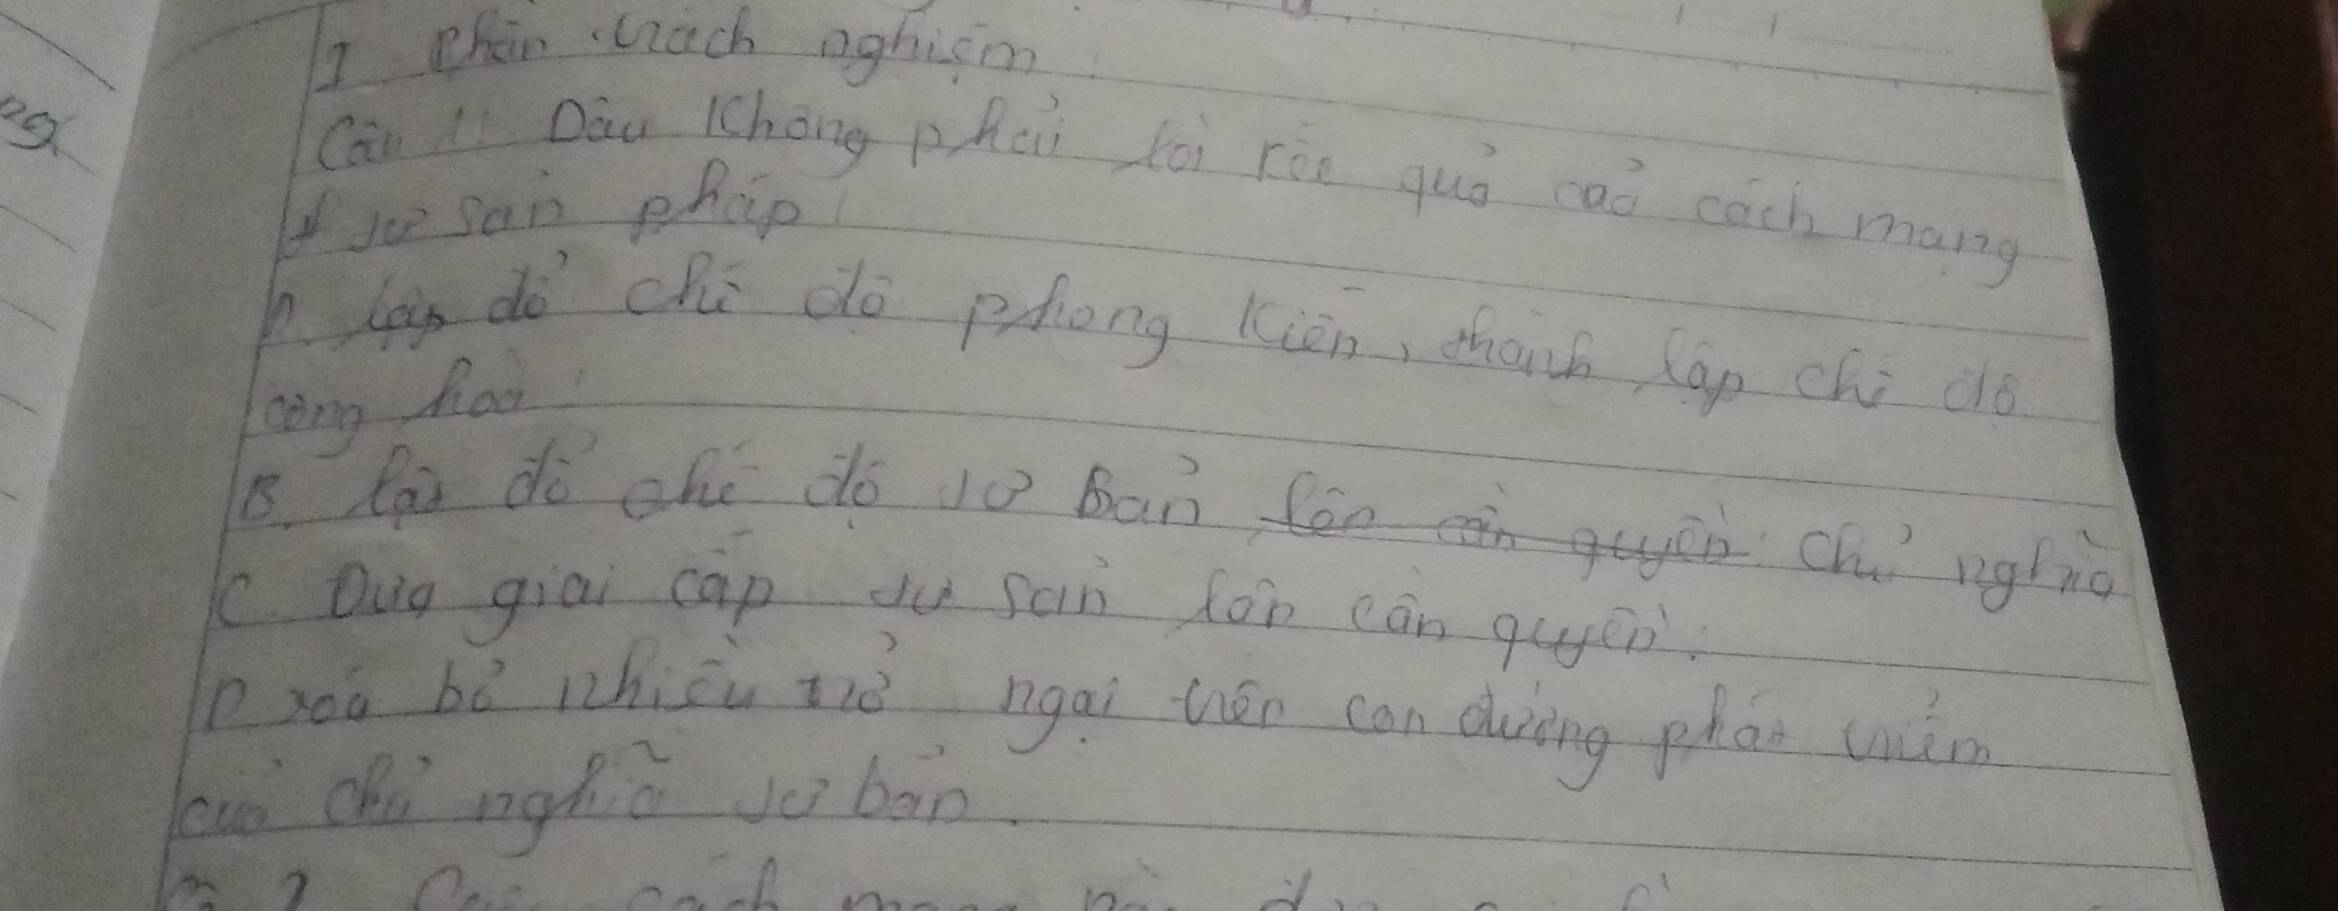 I Phần trắch nghiệm
Câu 1: Đâu không phải là kết quả cảả cách mạng
tư sản pháp
A. lập đổ chế độ phong kiến, thành lập chế độ
cộng hoà
B. lật đổ chế độ tư Bản lên cần quyền chủ nghĩa
C. Đưa giai cấp tư sản lên cần quyền.
D xoá bỏ nhiều trở ngại trên con đường phát triểm
của chủ nghĩã tư bản.